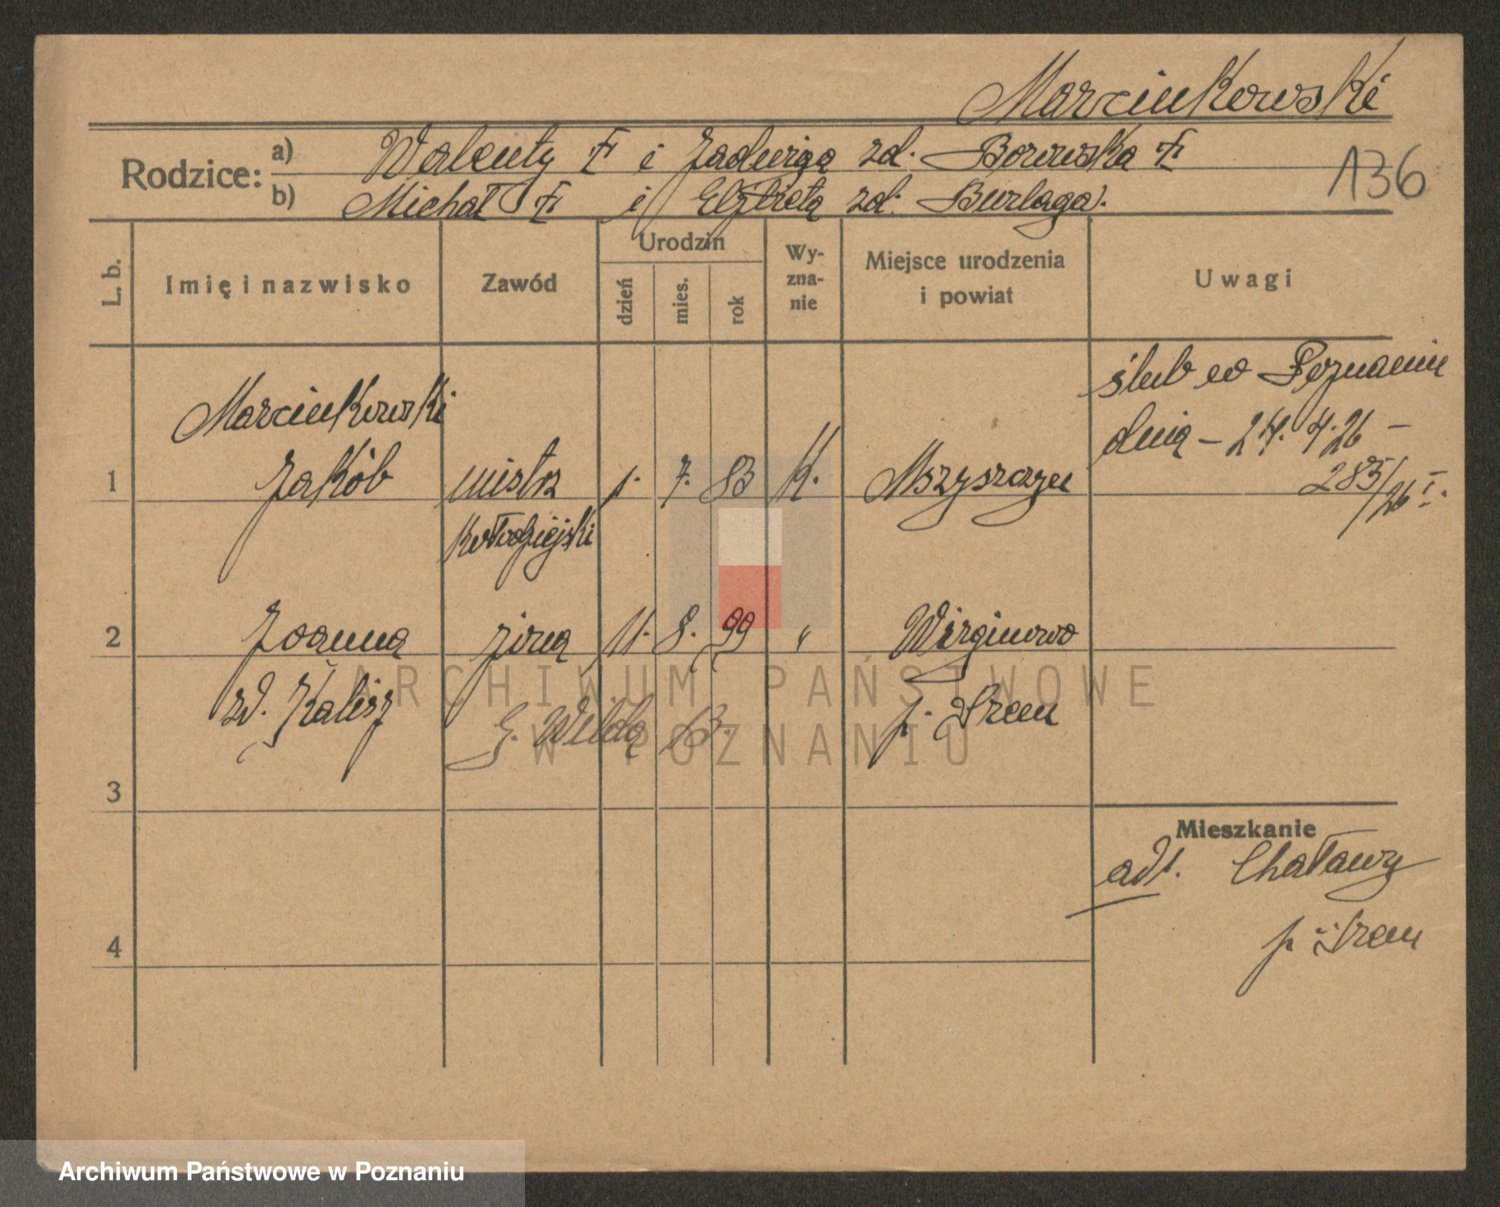 Marcinkowski
Rodzice:
a) Walenty † i Jadwiga zd. Borowska †
b) Michał † i Elżbieta zd. Burlaga.
136
L. b.
Imię i nazwisko
Zawód
Urodzin
dzień
mies.
rok
Wy-
zna-
nie
Miejsce urodzenia
i powiat
Uwagi
ślub w Poznaniu
dnia - 24. 4. 26 -
285/26 I.
Marcinkowski
1 Jakób mistrz 1. 7. 83 K. Mszyszczyn
kołodziejski
2 Joanna żona 11. 8. 99 " Wirginowo
zd. Kalisz p. Śrem
G. Wilda 13.
3
Mieszkanie
adr. Chaławy
p. Śrem
4
ARCHIWUM PAŃSTWOWE
W POZNANIU
Archiwum Państwowe w Poznaniu